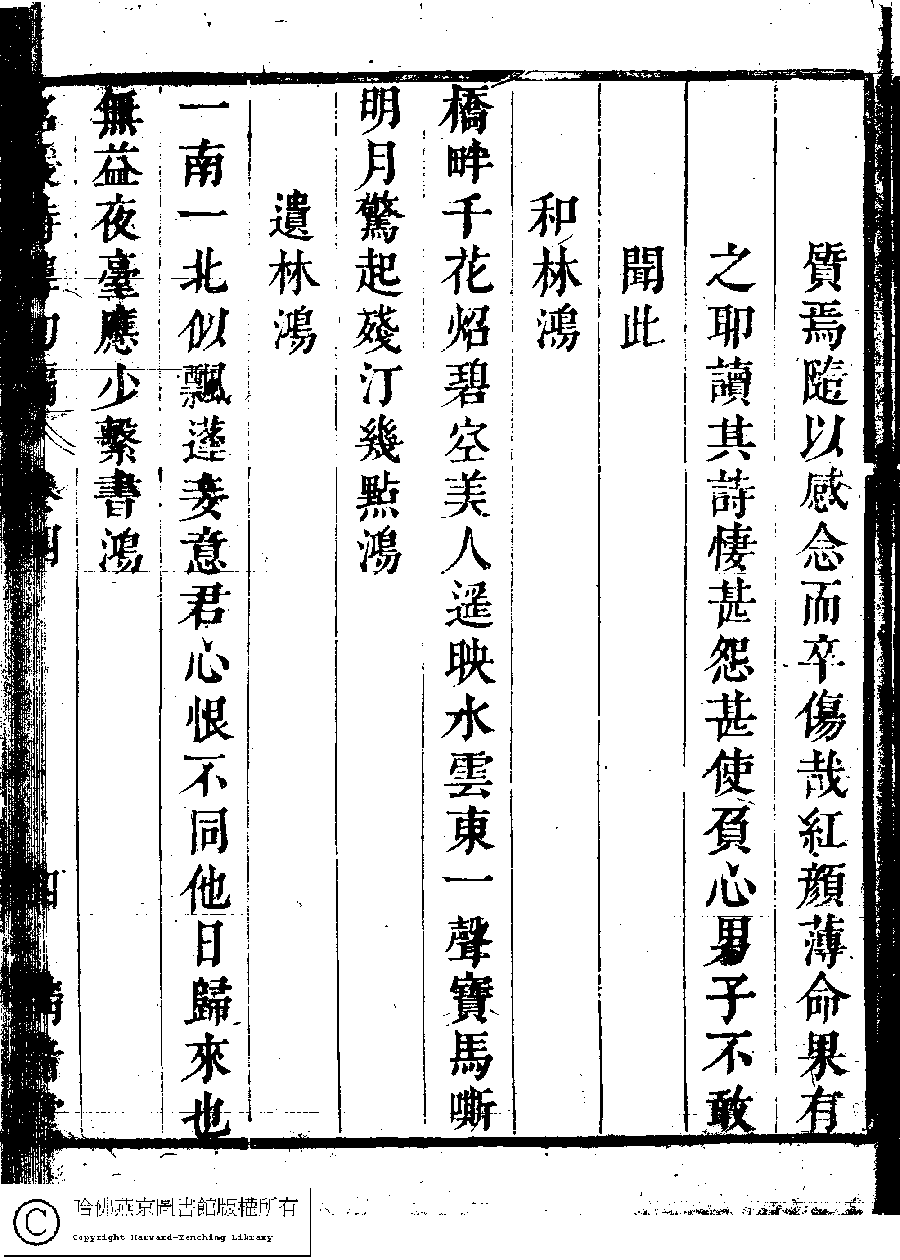 質焉隨以感念而卒傷哉紅顏薄命果有
之耶讀其詩悽甚怨甚使負心男子不敢
聞此
和林鴻
橋畔千花炤碧空美人遥映水雲東一聲寶馬嘶
明月驚起殘汀幾點鴻
遺林鴻
一南一北似飄蓬妾意君心恨不同他日歸來也
無益夜臺應少繫書鴻
名媛詩歸 卷四 四
哈佛燕京圖書館版權所有
Copyright Harvard-Yenching Library